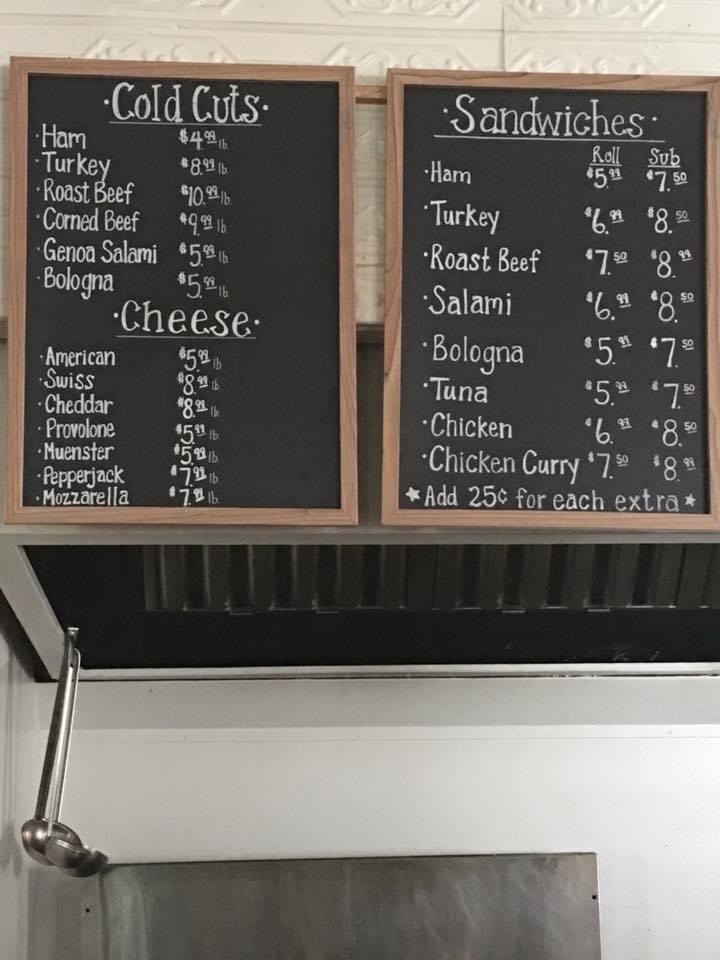 ·Cold Cuts·
·Ham $4.99 lb
·Turkey $8.99 lb
·Roast Beef $10.99 lb
·Corned Beef $9.99 lb
·Genoa Salami $5.99 lb
·Bologna $5.99 lb
·Cheese·
·American $5.99 lb
·Swiss $8.99 lb
·Cheddar $8.99 lb
·Provolone $5.99 lb
·Muenster $5.99 lb
·Pepperjack $7.99 lb
·Mozzarella $7.99 lb
·Sandwiches·
Roll Sub
·Ham $5.99 $7.50
·Turkey $6.99 $8.50
·Roast Beef $7.50 $8.99
·Salami $6.99 $8.50
·Bologna $5.99 $7.50
·Tuna $5.99 $7.50
·Chicken $6.99 $8.50
·Chicken Curry $7.50 $8.99
★Add 25¢ for each extra★